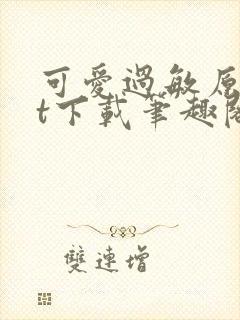 可愛過敏原
t下載筆趣閣
雙連增